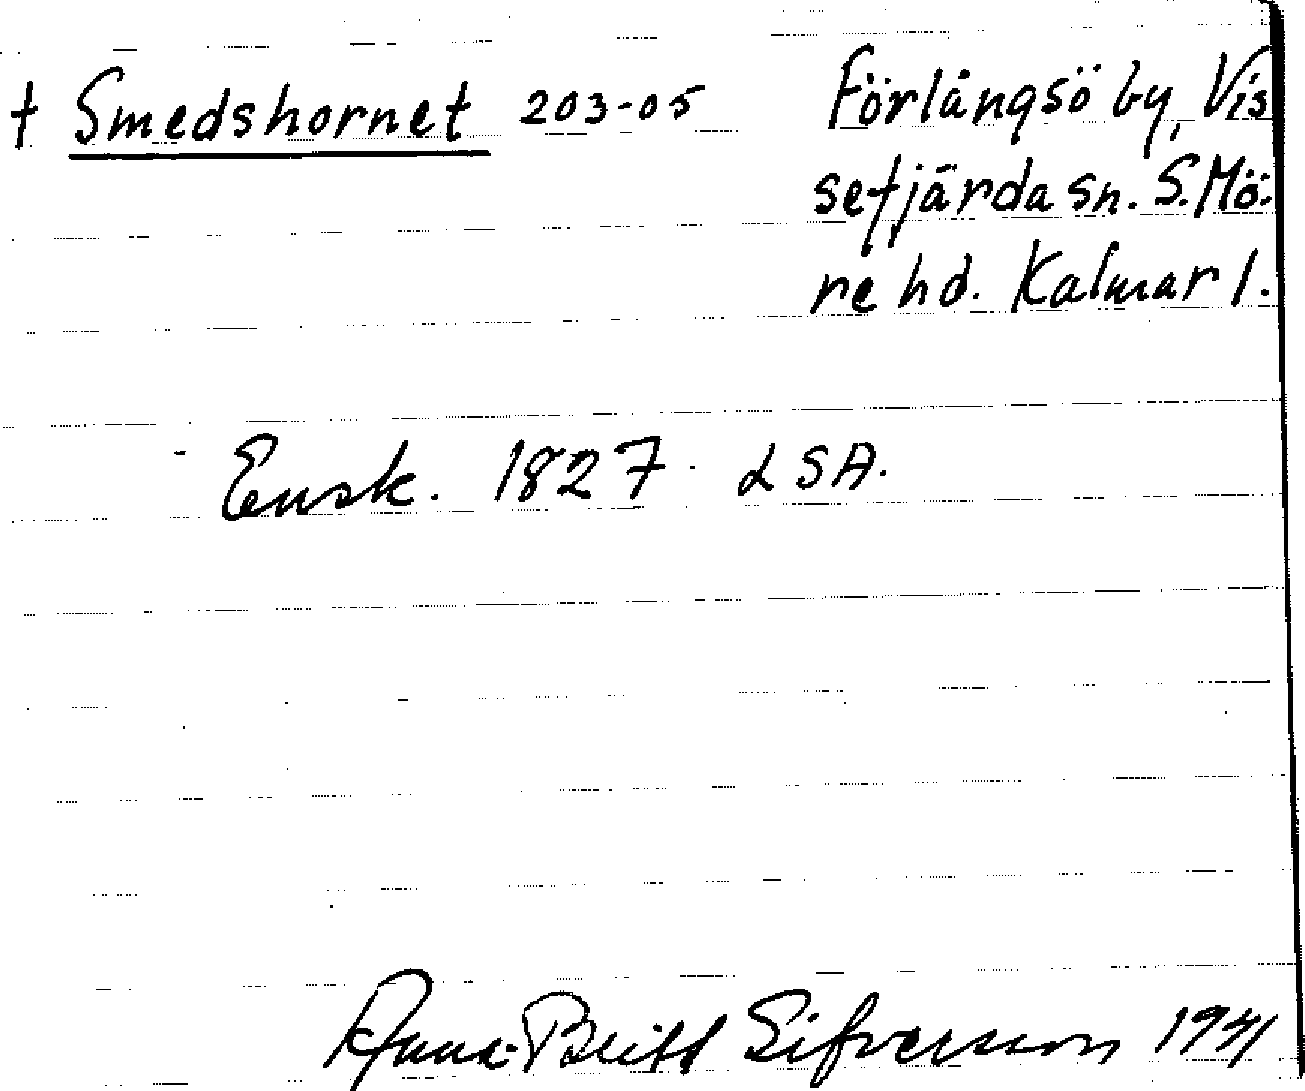 † Smedshornet 203-05 Förlångsö by, Vis
sefjärda sn. S. Mö:
re hd. Kalmar l.
Ensk. 1827. LSA.
Anna-Britt Sifversson 1941